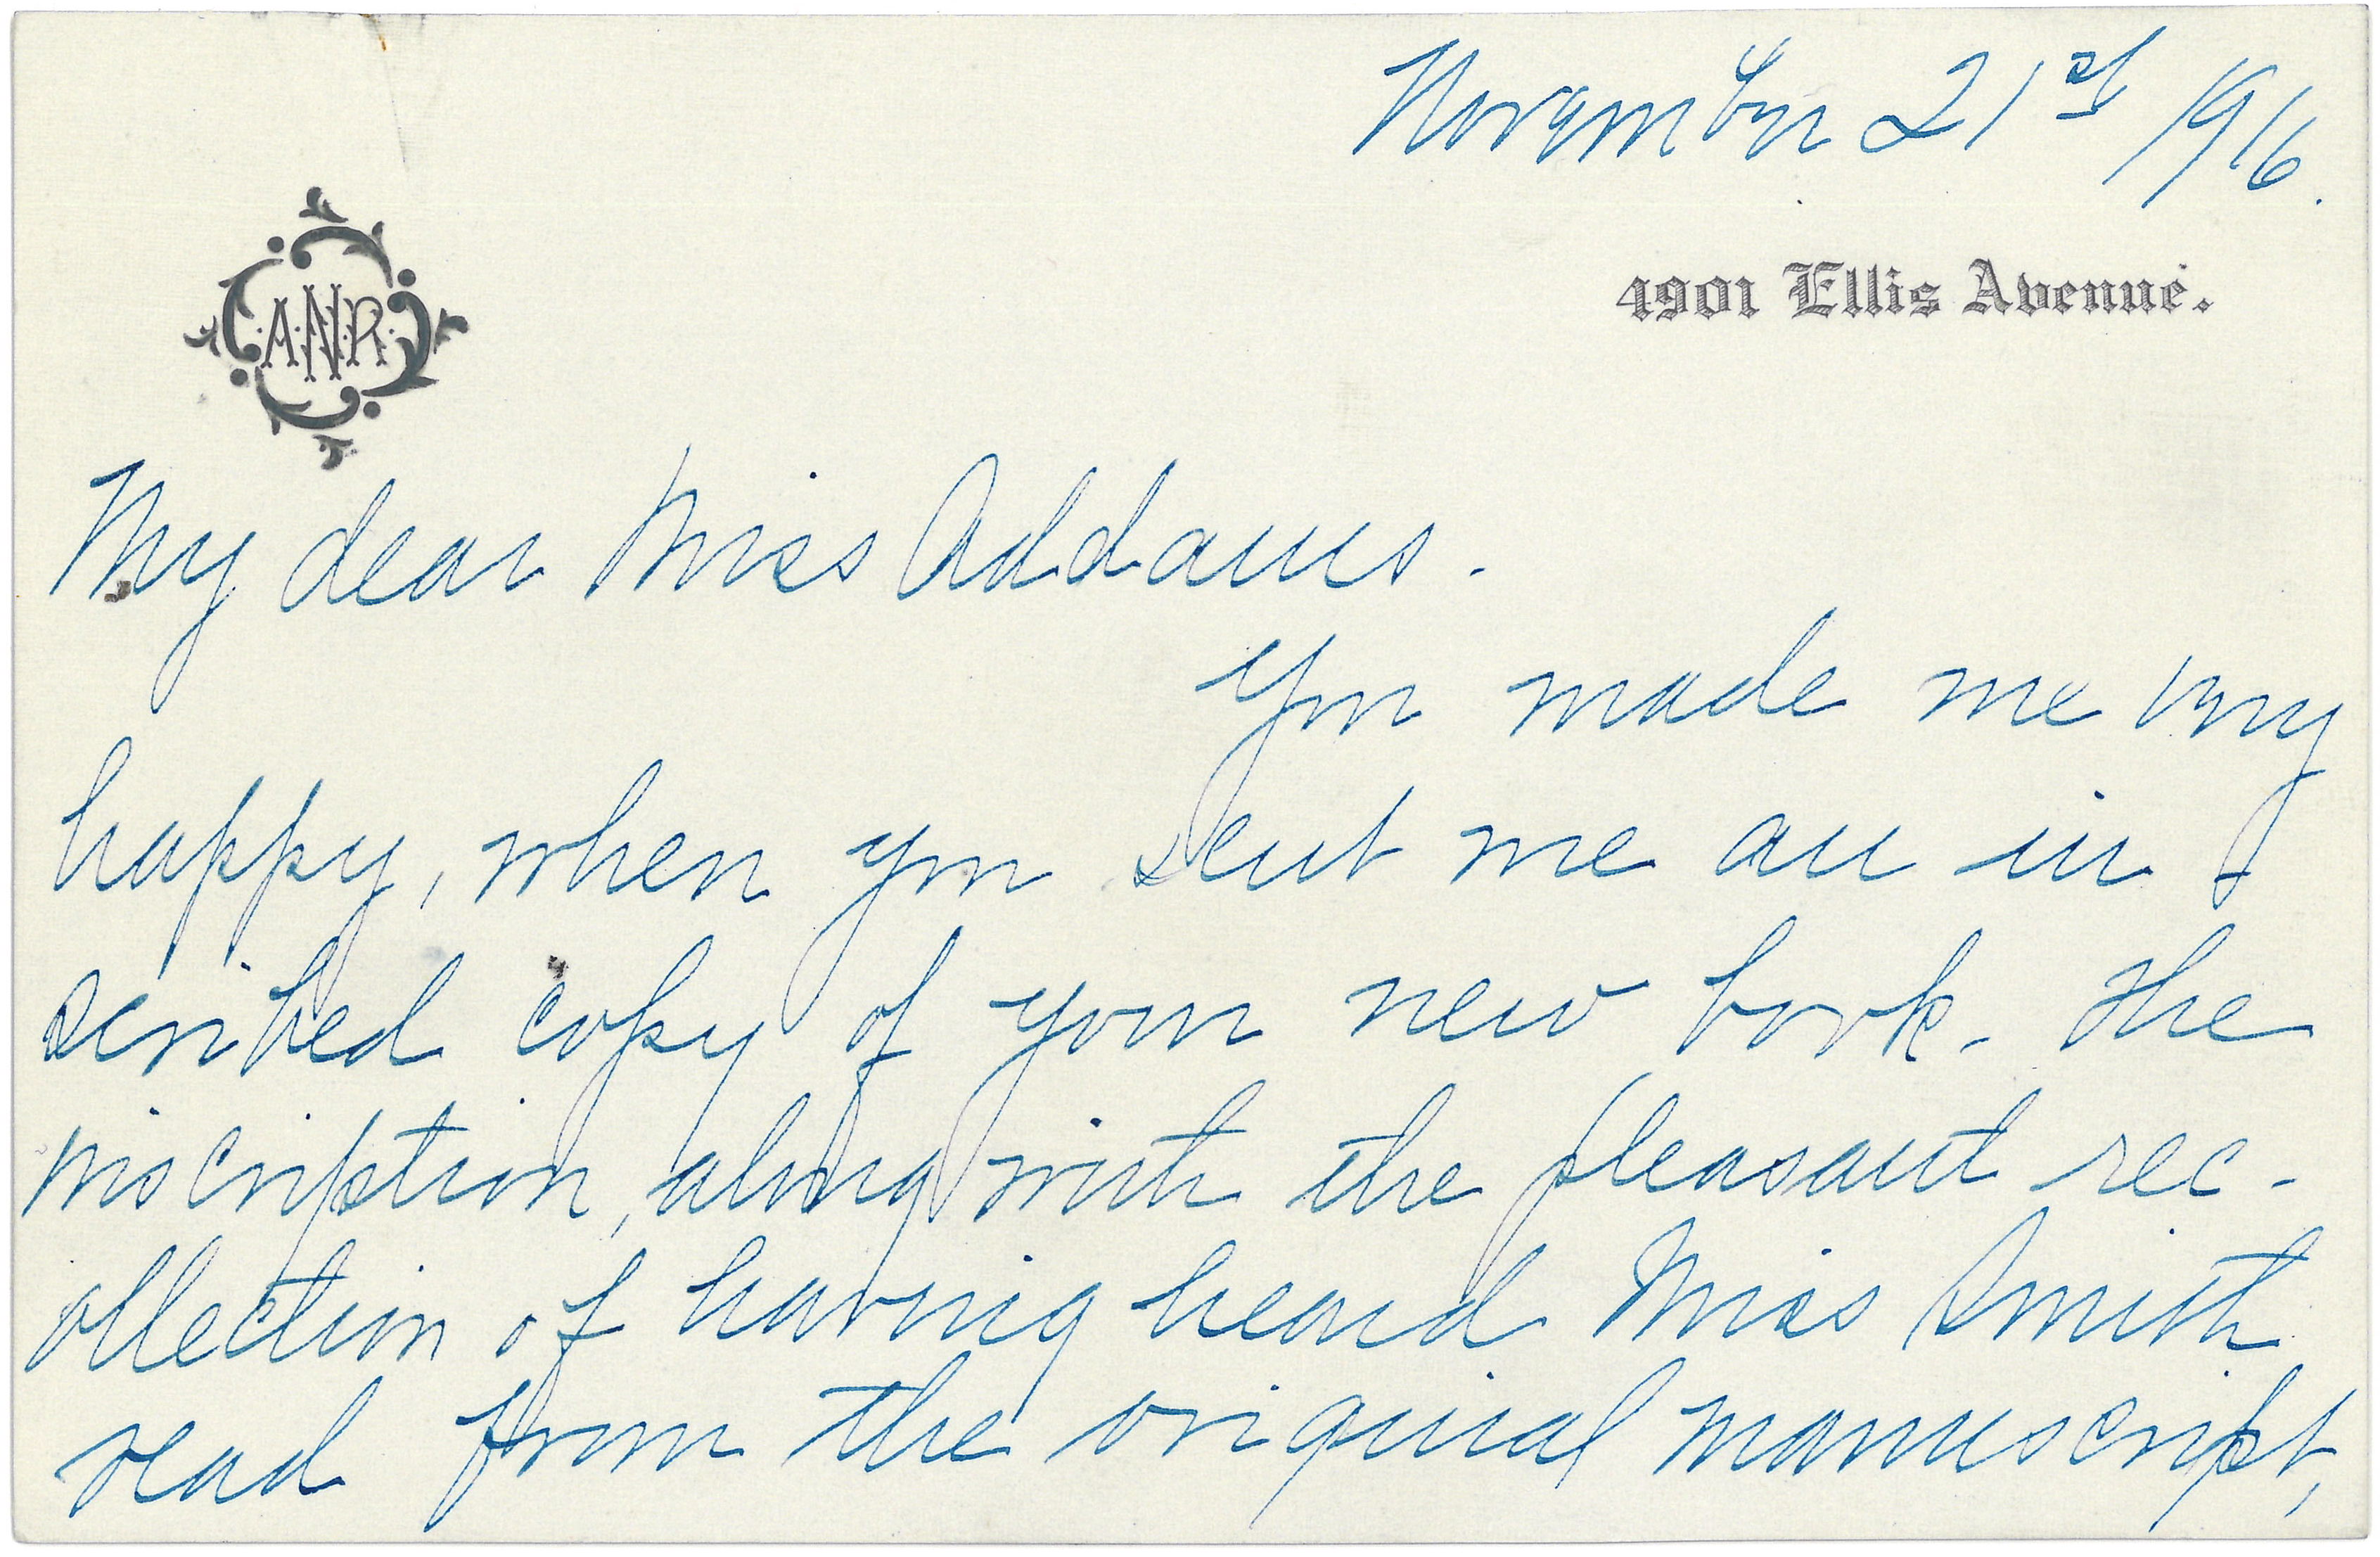 November 21st 1916.
4901 Ellis Avenue.
ANR
My dear Miss Addams.
You made me very
happy, when you sent me an in
scribed copy of your new book. The
inscription, along with the pleasant rec-
ollection of having heard Miss Smith
read from the original manuscript,